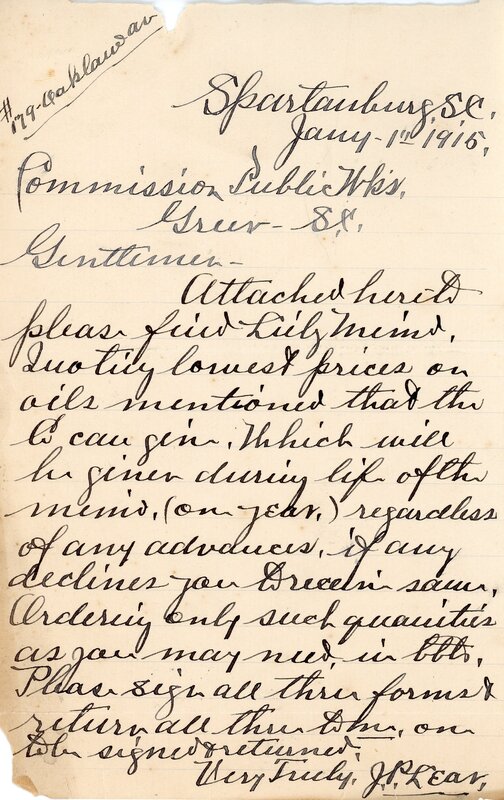 #179-Oaklawn av
Spartanburg, S.C.
Jany-1st 1915,
Commission Public Wks,
Greer- S.C.
Gentlemen-
Attached hereto
please find Memo,
Quoting lowest prices on
oils mentioned that the
Co can give, Which will
be given during life of the
memo, (one year,) regardless
of any advances, if any
declines you to receive same,
Ordering only such quanities
as you may need, in bbls,
Please sign all three forms &
return all three to me, one
to be signed & returned,
Very Truly, J.P. Lear,